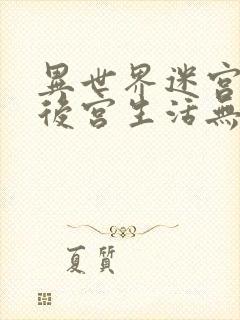 異世界迷宮
後宮生活無
夏質